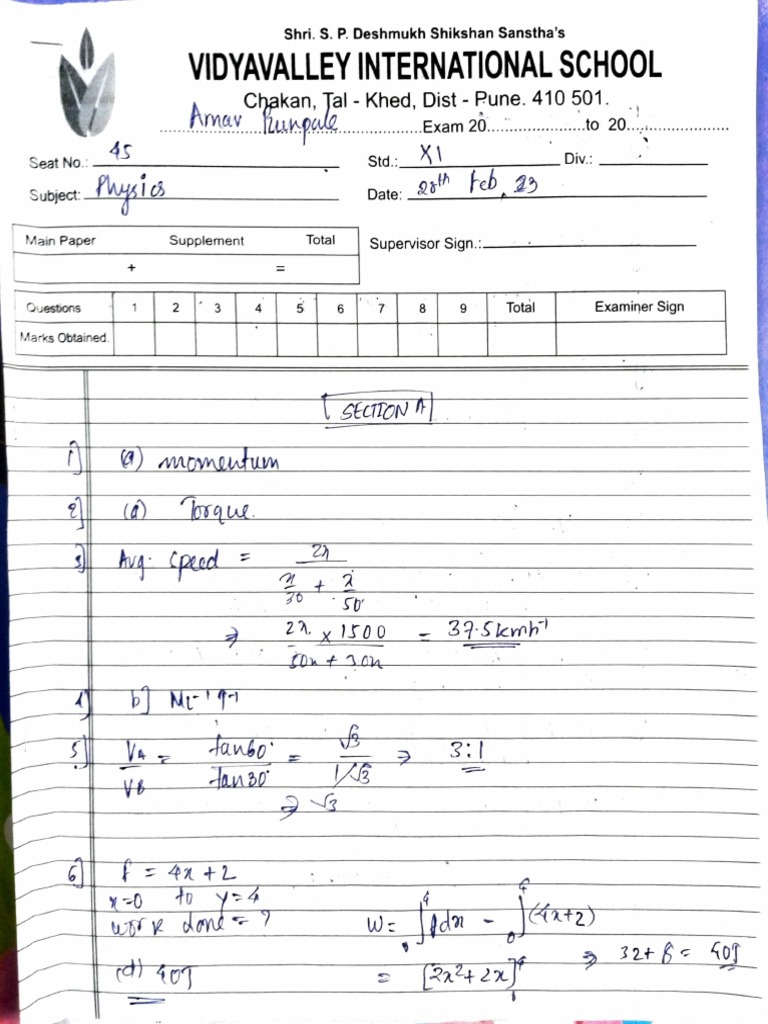 Shri. S. P. Deshmukh Shikshan Sanstha's
VIDYAVALLEY INTERNATIONAL SCHOOL
Chakan, Tal - Khed, Dist - Pune. 410 501.
Amar Exam 20 to 20
Seat No.: 45 Std.: XI Div.:
Subject: Physics Date: 28th Feb, 23
Main Paper Supplement Total Supervisor Sign.:
+ =
Questions 1 2 3 4 5 6 7 8 9 Total Examiner Sign
Marks Obtained.
SECTION A
1] (a) momentum
2] (d) Torque.
3] Avg. Speed = 2x / (x/30 + x/50)
⇒ 2x × 1500 / 50x + 30x = 37.5kmh-1
4] b] ML-1T-1
5] VA/VB = tan60°/tan30° = √3 / 1/√3 ⇒ 3:1
⇒ √3
6] f = 4x+2
x=0 to y=4
work done = ? W = ∫ f dx - ∫ (4x+2)
(d) 40J = [2x²+2x] ⇒ 32+8 = 40J